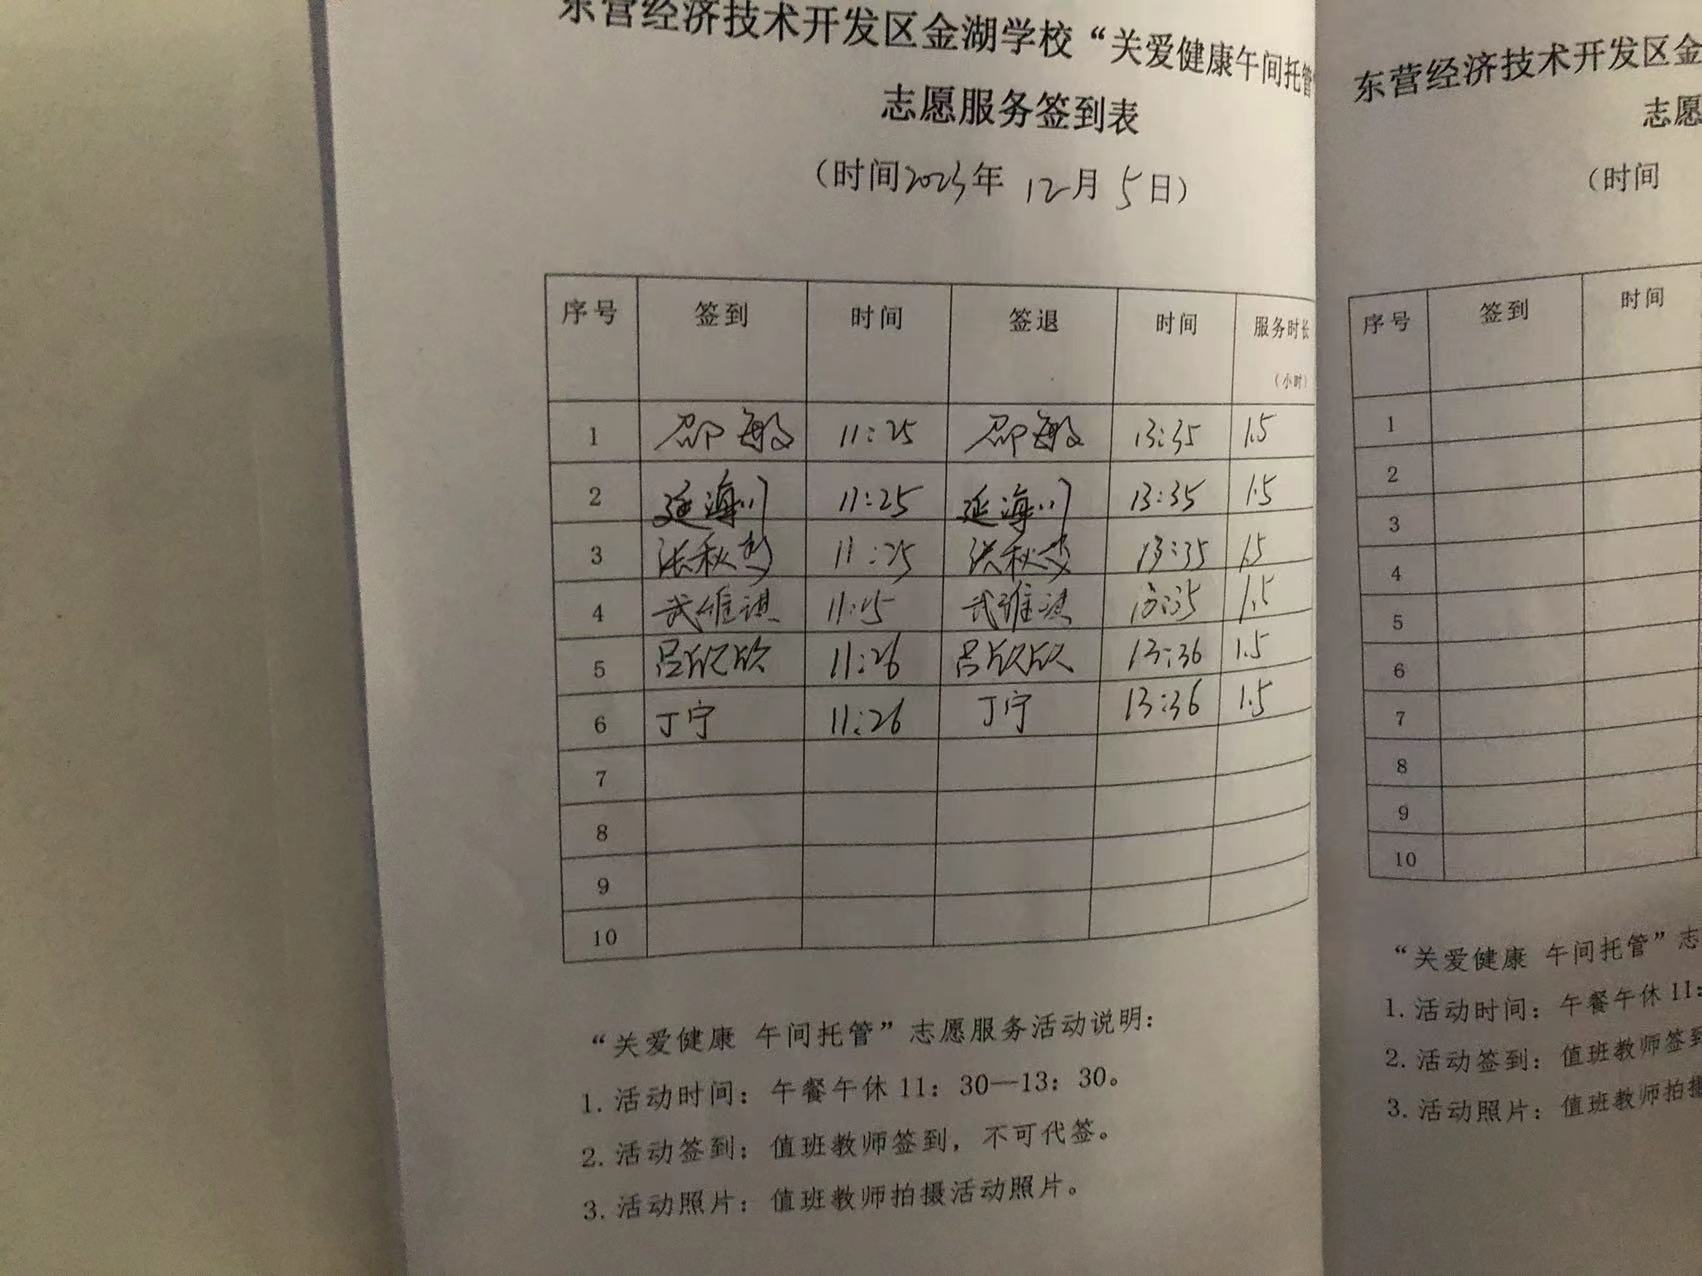 东营经济技术开发区金湖学校“关爱健康午间托管
志愿服务签到表
（时间2023年 12月 5日）
序号 签到 时间 签退 时间 服务时长
（小时）
1 邵敏 11:25 邵敏 13:35 1.5
2 延海川 11:25 延海川 13:35 1.5
3 张秋 11:25 张秋 13:35 1.5
4 武维 武维 1.5
5 吕欣欣 11:26 吕欣欣 13:36 1.5
6 丁宁 11:26 丁宁 13:36 1.5
7
8
9
10
“关爱健康 午间托管”志愿服务活动说明：
1. 活动时间：午餐午休11：30—13：30。
2. 活动签到：值班教师签到，不可代签。
3. 活动照片：值班教师拍摄活动照片。
东营经济技术开发区金
志愿
（时间
序号 签到 时间
1
2
3
4
5
6
7
8
9
10
“关爱健康 午间托管”志
1. 活动时间：午餐午休11：
2. 活动签到：值班教师签到
3. 活动照片：值班教师拍摄